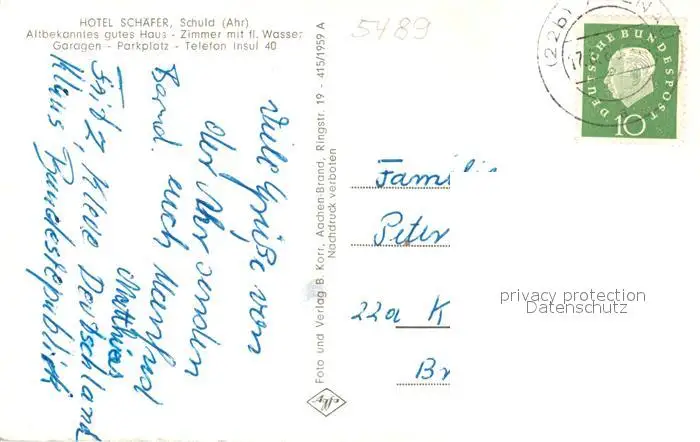 HOTEL SCHÄFER, Schuld (Ahr)
Altbekanntes gutes Haus - Zimmer mit fl. Wasser
Garagen - Parkplatz - Telefon Insul 40
5489
Viele Grüße von
der Ahr senden
euch Manfred
Bernd
Mathias
Fritz, Kleve Deutschland
Klaus Bundesrepublik
Foto und Verlag B. Korr, Aachen-Brand, Ringstr. 19 - 415/1959 A
Nachdruck verboten
(22b)
17.
DEUTSCHE BUNDESPOST
10
Familie
Peter
22a K
Br
privacy protection
Datenschutz